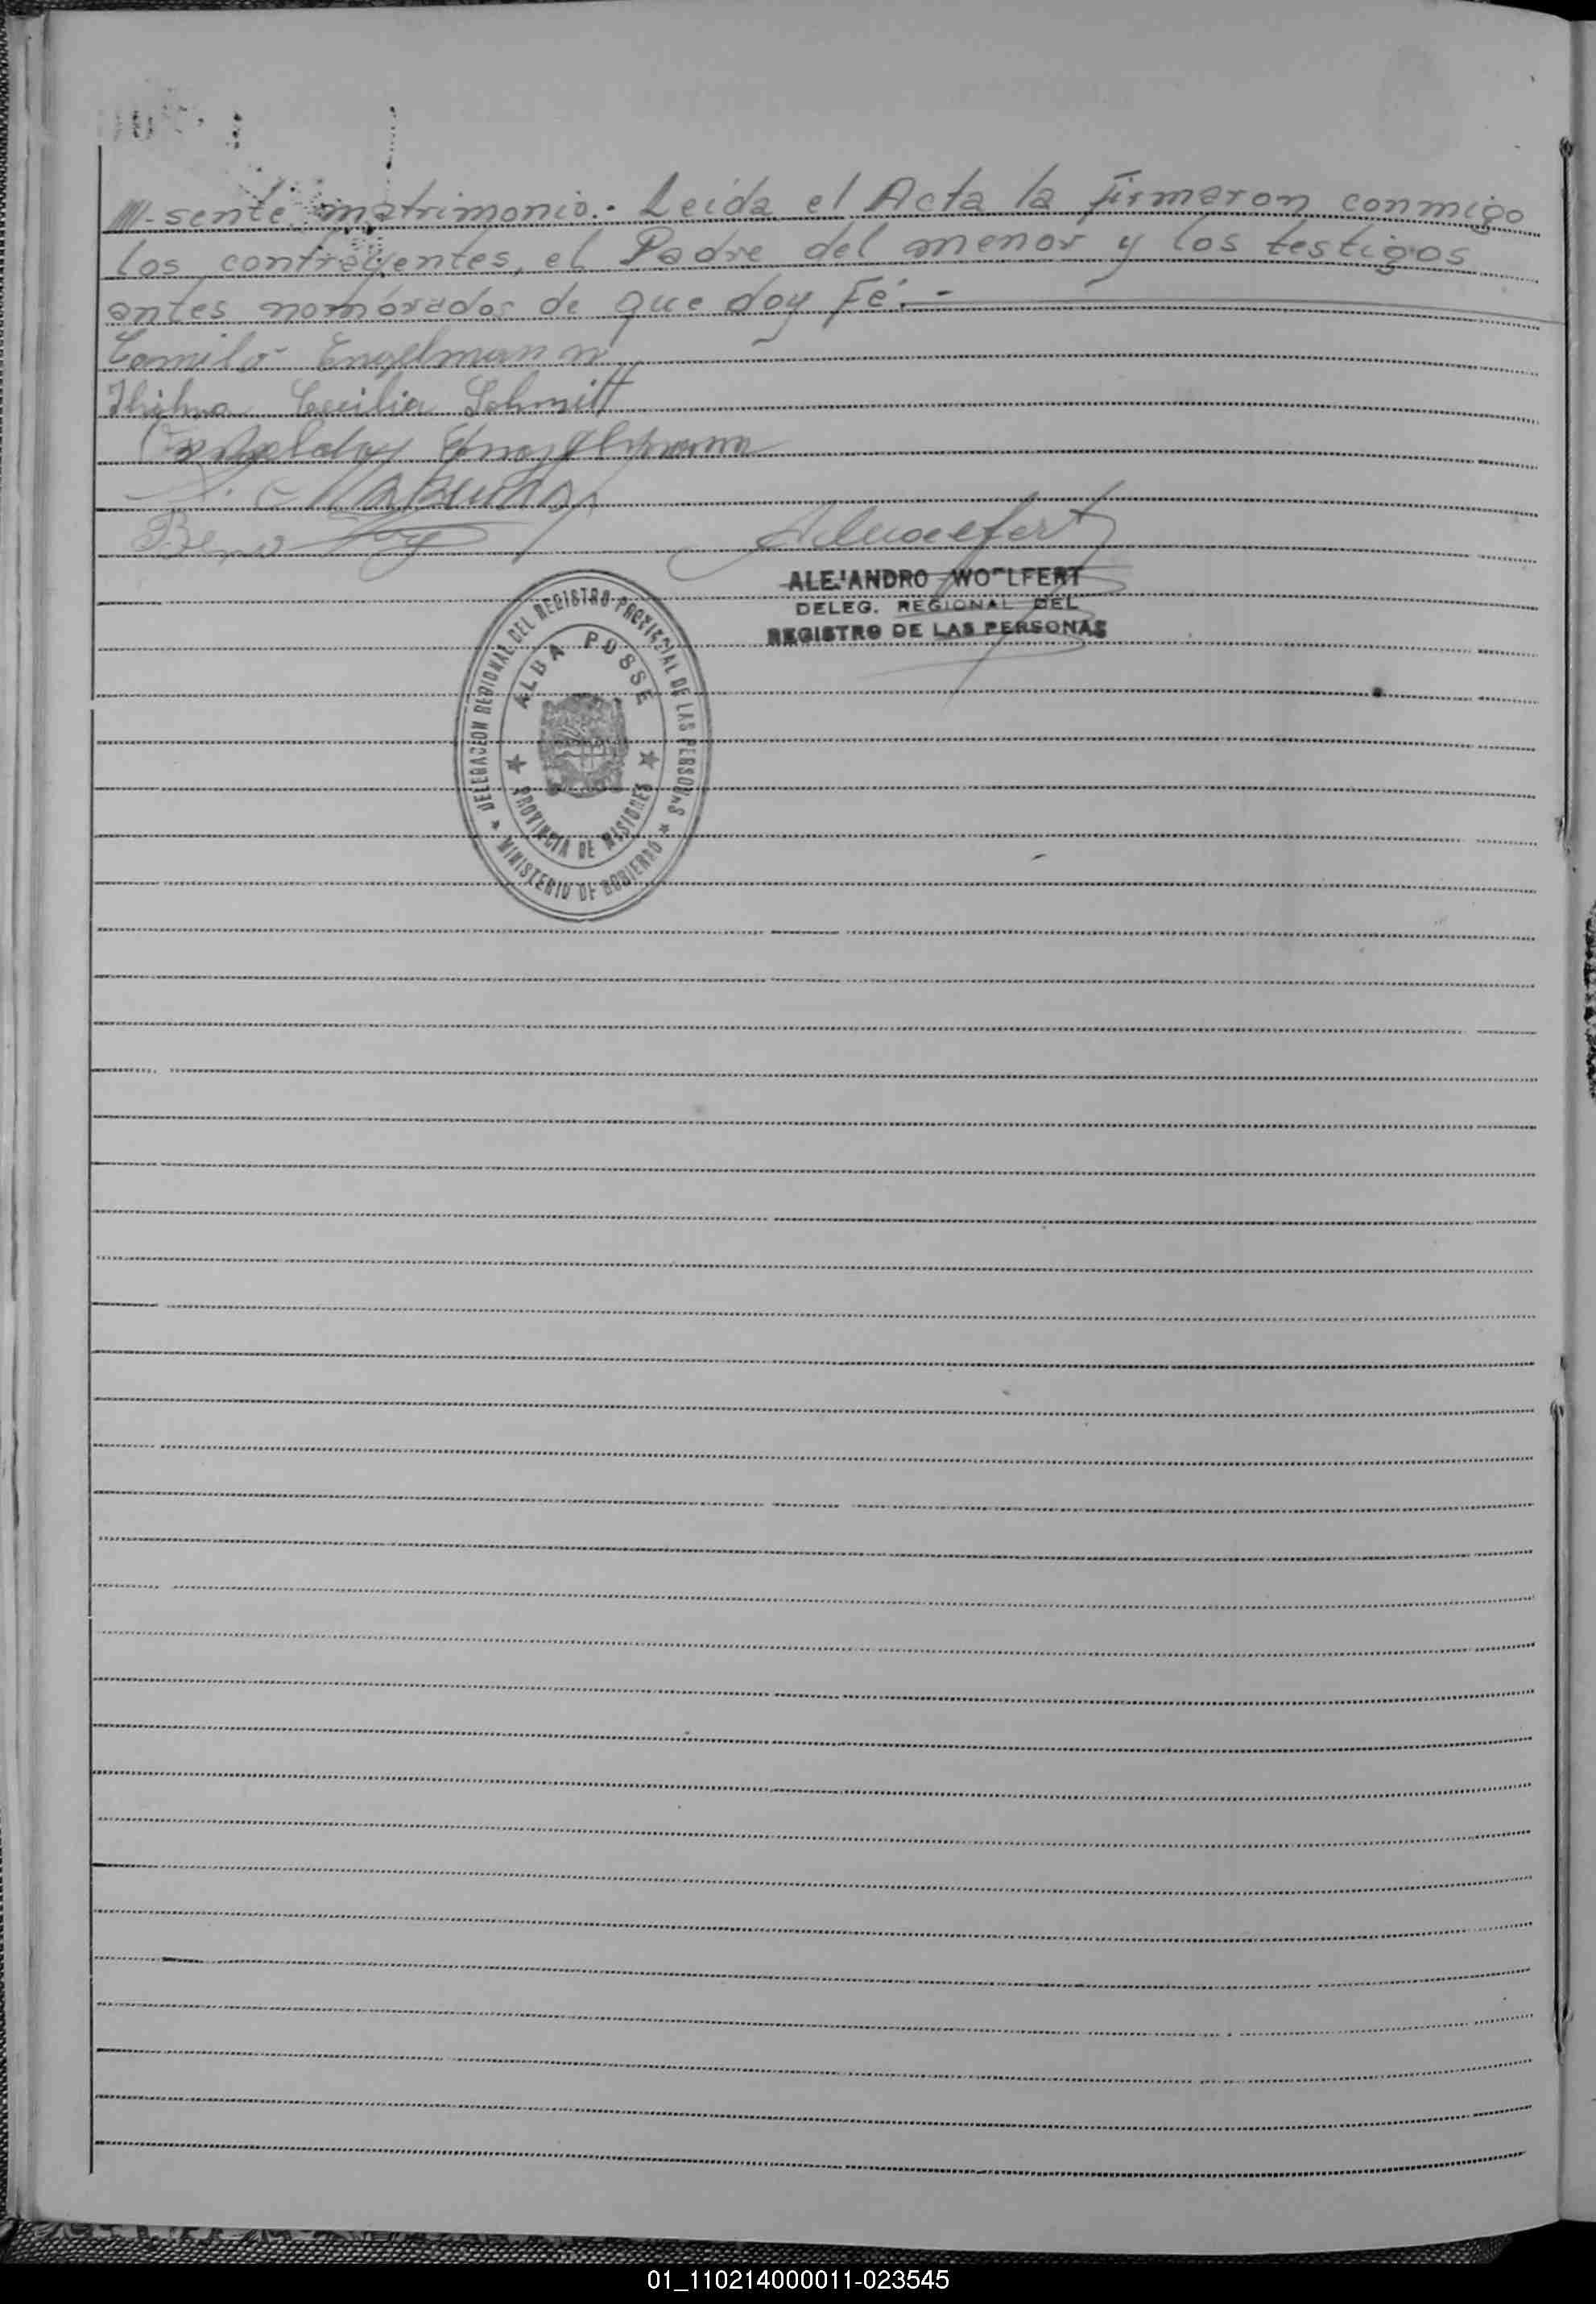 ///-sente matrimonio.- Leída el Acta la firmaron conmigo
los contrayentes, el Padre del menor y los testigos
antes nombrados de que doy Fé.-
Camilo Engelmann
Thelma Cecilia Schmitt
Engelmann
Beno
ALEJANDRO WOLFERT
DELEG. REGIONAL DEL
REGISTRO DE LAS PERSONAS
DELEGACION REGIONAL DEL REGISTRO PROVINCIAL DE LAS PERSONAS
ALBA POSSE
PROVINCIA DE MISIONES
MINISTERIO DE GOBIERNO
01_110214000011-023545